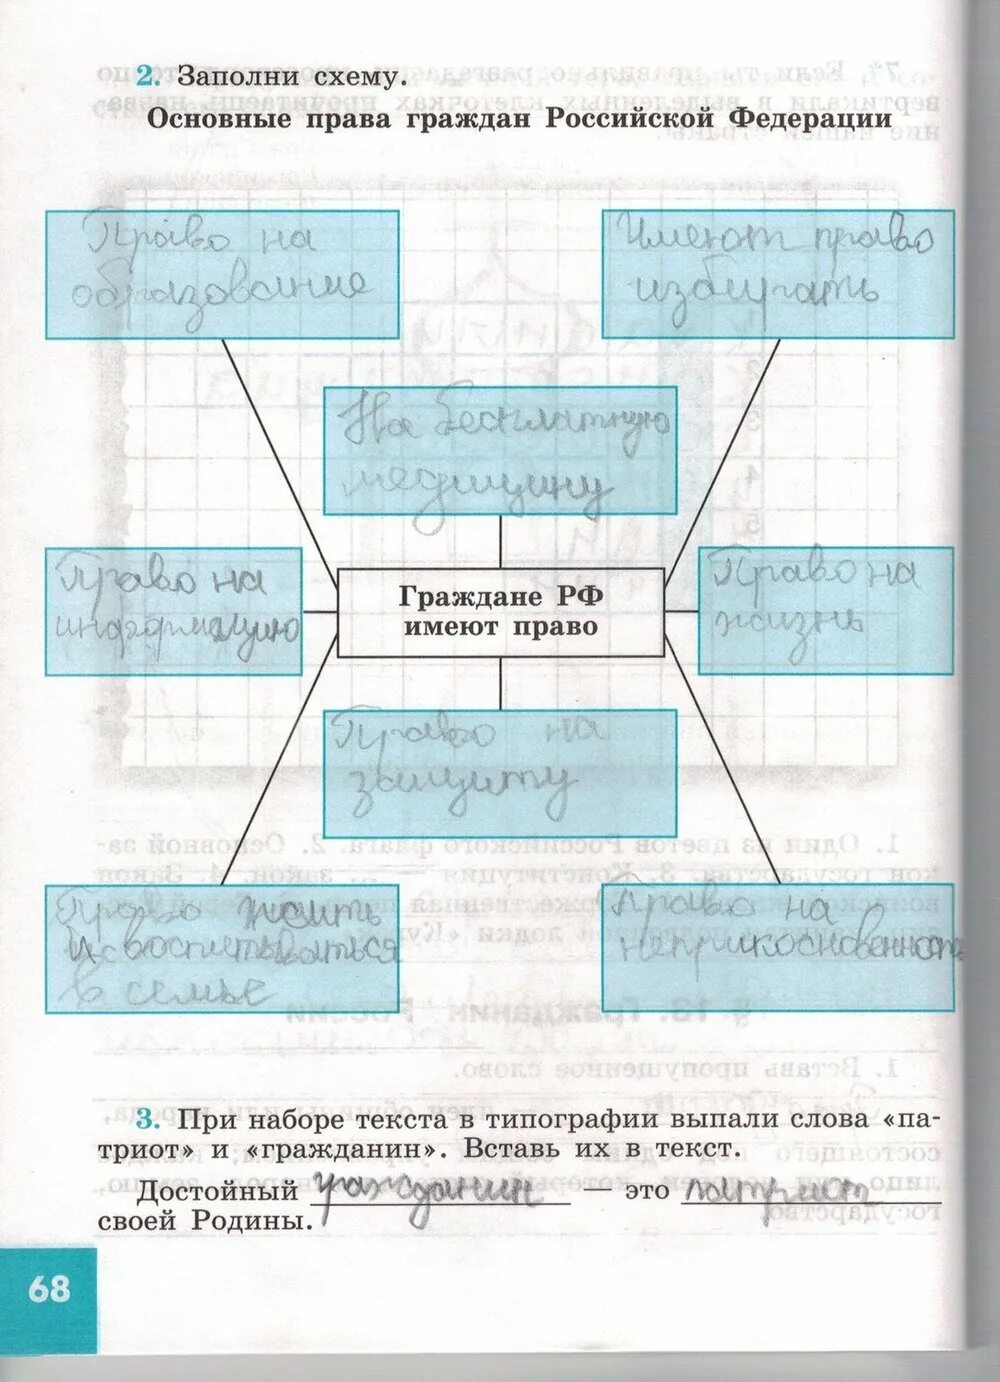 2. Заполни схему.
Основные права граждан Российской Федерации
Право на
образование
Имеют право
избирать
На бесплатную
медицину
Право на
информацию
Граждане РФ
имеют право
Право на
жизнь
Право на
защиту
Право жить
и воспитываться
в семье
Право на
неприкосновенность
3. При наборе текста в типографии выпали слова «па-
триот» и «гражданин». Вставь их в текст.
Достойный гражданин — это патриот
своей Родины.
68